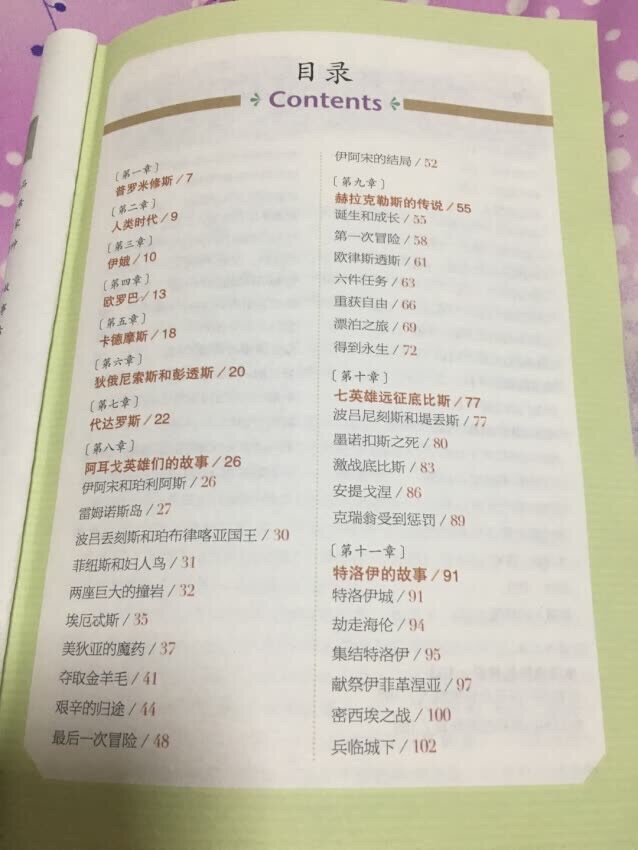 目录
Contents
〔第一章〕
普罗米修斯/7
〔第二章〕
人类时代/9
〔第三章〕
伊娥/10
〔第四章〕
欧罗巴/13
〔第五章〕
卡德摩斯/18
〔第六章〕
狄俄尼索斯和彭透斯/20
〔第七章〕
代达罗斯/22
〔第八章〕
阿耳戈英雄们的故事/26
伊阿宋和珀利阿斯/26
雷姆诺斯岛/27
波吕丢刻斯和珀布律喀亚国王/30
菲纽斯和妇人鸟/31
两座巨大的撞岩/32
埃厄忒斯/35
美狄亚的魔药/37
夺取金羊毛/41
艰辛的归途/44
最后一次冒险/48
伊阿宋的结局/52
〔第九章〕
赫拉克勒斯的传说/55
诞生和成长/55
第一次冒险/58
欧律斯透斯/61
六件任务/63
重获自由/66
漂泊之旅/69
得到永生/72
〔第十章〕
七英雄远征底比斯/77
波吕尼刻斯和堤丢斯/77
墨诺扣斯之死/80
激战底比斯/83
安提戈涅/86
克瑞翁受到惩罚/89
〔第十一章〕
特洛伊的故事/91
特洛伊城/91
劫走海伦/94
集结特洛伊/95
献祭伊菲革涅亚/97
密西埃之战/100
兵临城下/102